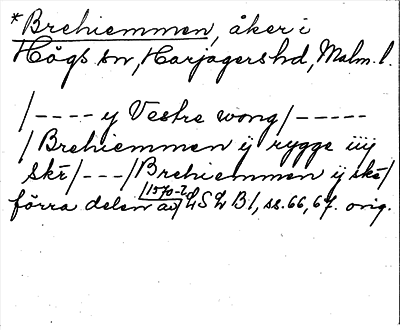 *Brehiemmen, åker i
Högs sn, Harjagers hd, Malm. l.
/---- y Vestre wong/-----
/Brehiemmen ij rygge iiij
skr/---/Brehiemmen ij skr/
förra delen /1570-2/
av/ LSLB1, ss. 66, 67. orig.